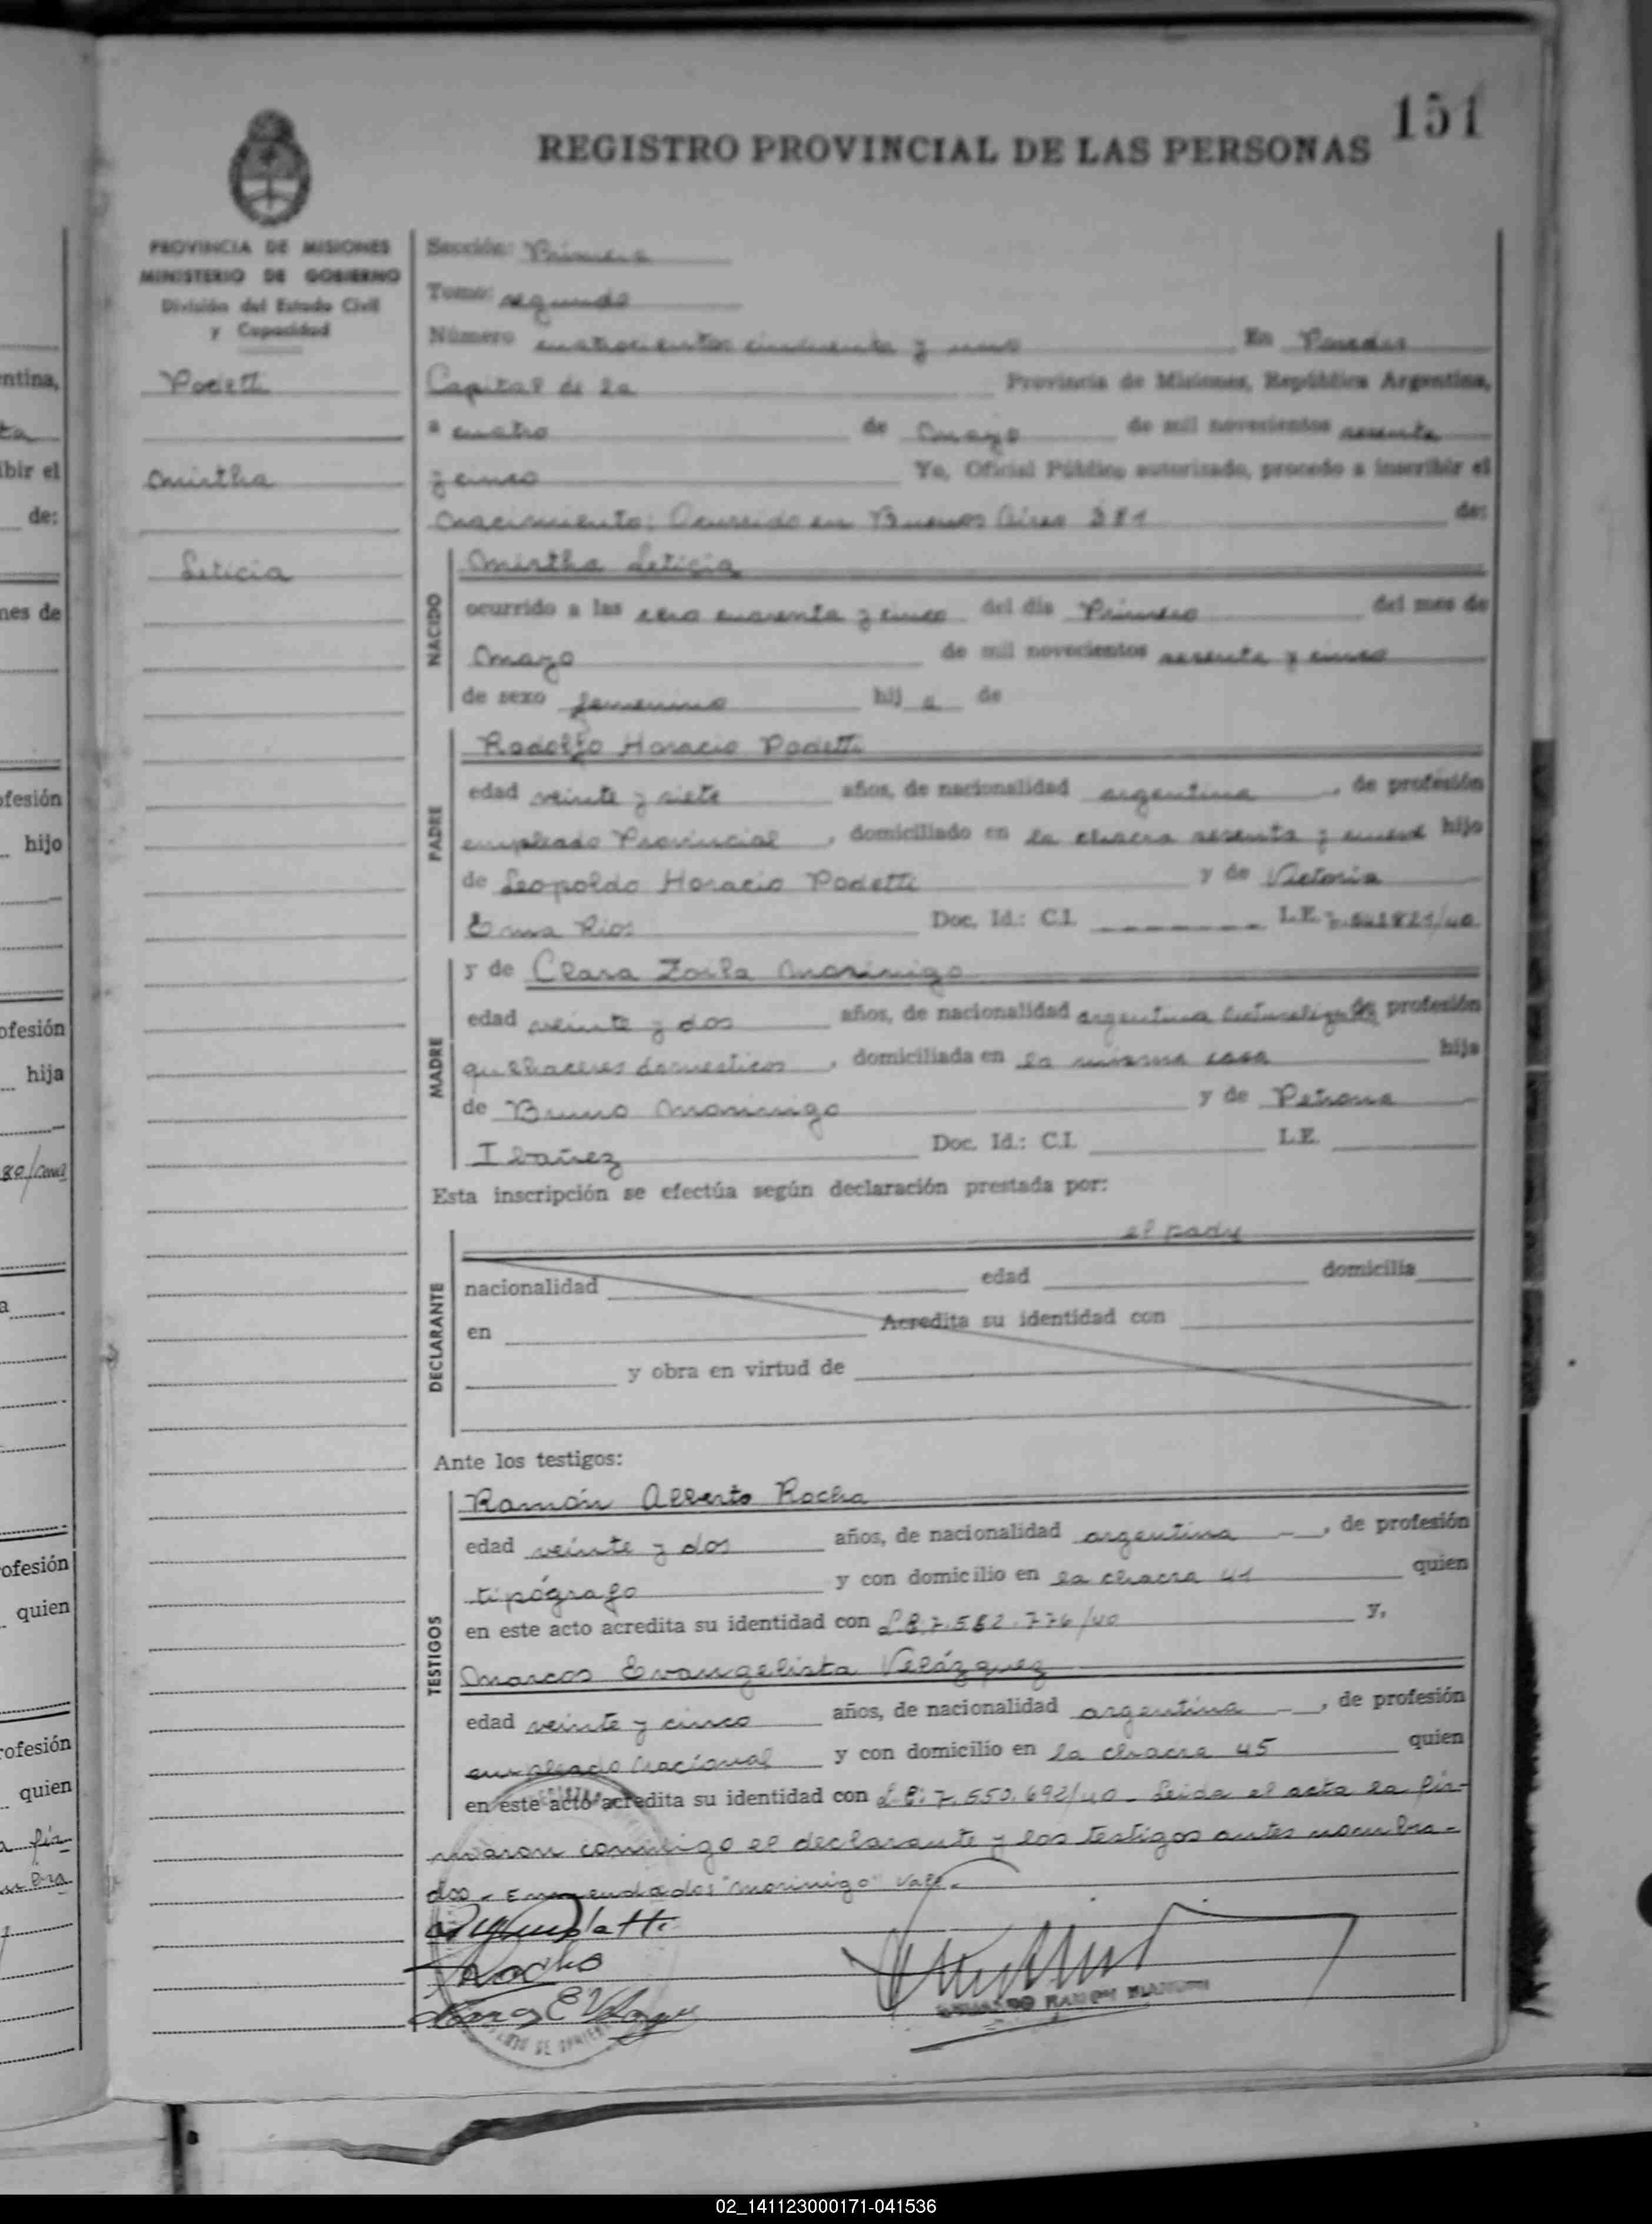 151
REGISTRO PROVINCIAL DE LAS PERSONAS
PROVINCIA DE MISIONES
MINISTERIO DE GOBIERNO
División del Estado Civil
y Capacidad
Podetti
Mirtha
Leticia
Sección: Primera
Tomo: segundo
Número cuatrocientos cincuenta y uno En Posadas
Capital de la Provincia de Misiones, República Argentina,
a cuatro de Mayo de mil novecientos sesenta
y cinco Yo, Oficial Público autorizado, procedo a inscribir el
Nacimiento: Ocurrido en Buenos Aires 381 de:
NACIDO
Mirtha Leticia
ocurrido a las cero cuarenta y cinco del día Primero del mes de
Mayo de mil novecientos sesenta y cinco
de sexo femenino hij a de
PADRE
Rodolfo Horacio Podetti
edad veinte y siete años, de nacionalidad argentina, de profesión
empleado Provincial, domiciliado en la chacra sesenta y hijo
de Leopoldo Horacio Podetti y de Victoria
Erma Rios Doc. Id.: C.I. L.E.
MADRE
y de Clara Zoila Morinigo
edad veinte y dos años, de nacionalidad argentina profesión
quehaceres domesticos, domiciliada en la misma casa hija
de Bruno Morinigo y de Petrona
Ibañez Doc. Id.: C.I. L.E.
Esta inscripción se efectúa según declaración prestada por:
DECLARANTE
el padre
nacionalidad edad domicilia
en Acredita su identidad con
y obra en virtud de
Ante los testigos:
TESTIGOS
Ramón Alberto Rocha
edad veinte y dos años, de nacionalidad argentina —, de profesión
tipógrafo y con domicilio en la chacra 41 quien
en este acto acredita su identidad con L.E. 7.552.776/40 y,
Marcos Evangelista Velázquez
edad veinte y cinco años, de nacionalidad argentina —, de profesión
empleado Nacional y con domicilio en la chacra 45 quien
en este acto acredita su identidad con L.E: 7.550.692/40 - Leida el acta la fir-
maron conmigo el declarante y los testigos antes nombra-
dos - Enmendados: "Morinigo" Vale. -
Rocha
RAMON
ntina,
ibir el
de:
mes de
ofesión
hijo
ofesión
hija
ofesión
quien
ofesión
quien
02_141123000171-041536